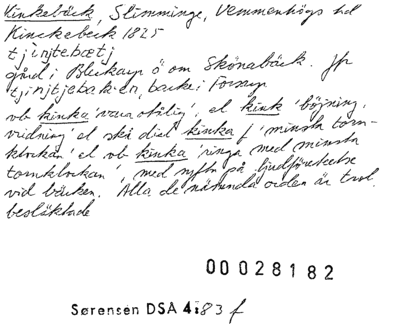 Kinkebäck, Slimminge, Vemmenhögs hd
Kinckebeck 1825
tjiŋtebætj
gård i Bleckarp ö om Skönabäck. Jfr
tjiŋtjebakien, backe i Forsarp
vb kinka 'vara otålig' el kink 'böjning,
vridning' el skå dial kinka f 'minsta torn-
klockan' el vb kinka 'ringa med minsta
tornklockan', med syftn på ljudföreteelse
vid bäcken. Alla de nämnda orden är trol.
besläktade
00028182
Sørensen DSA 4:83 f